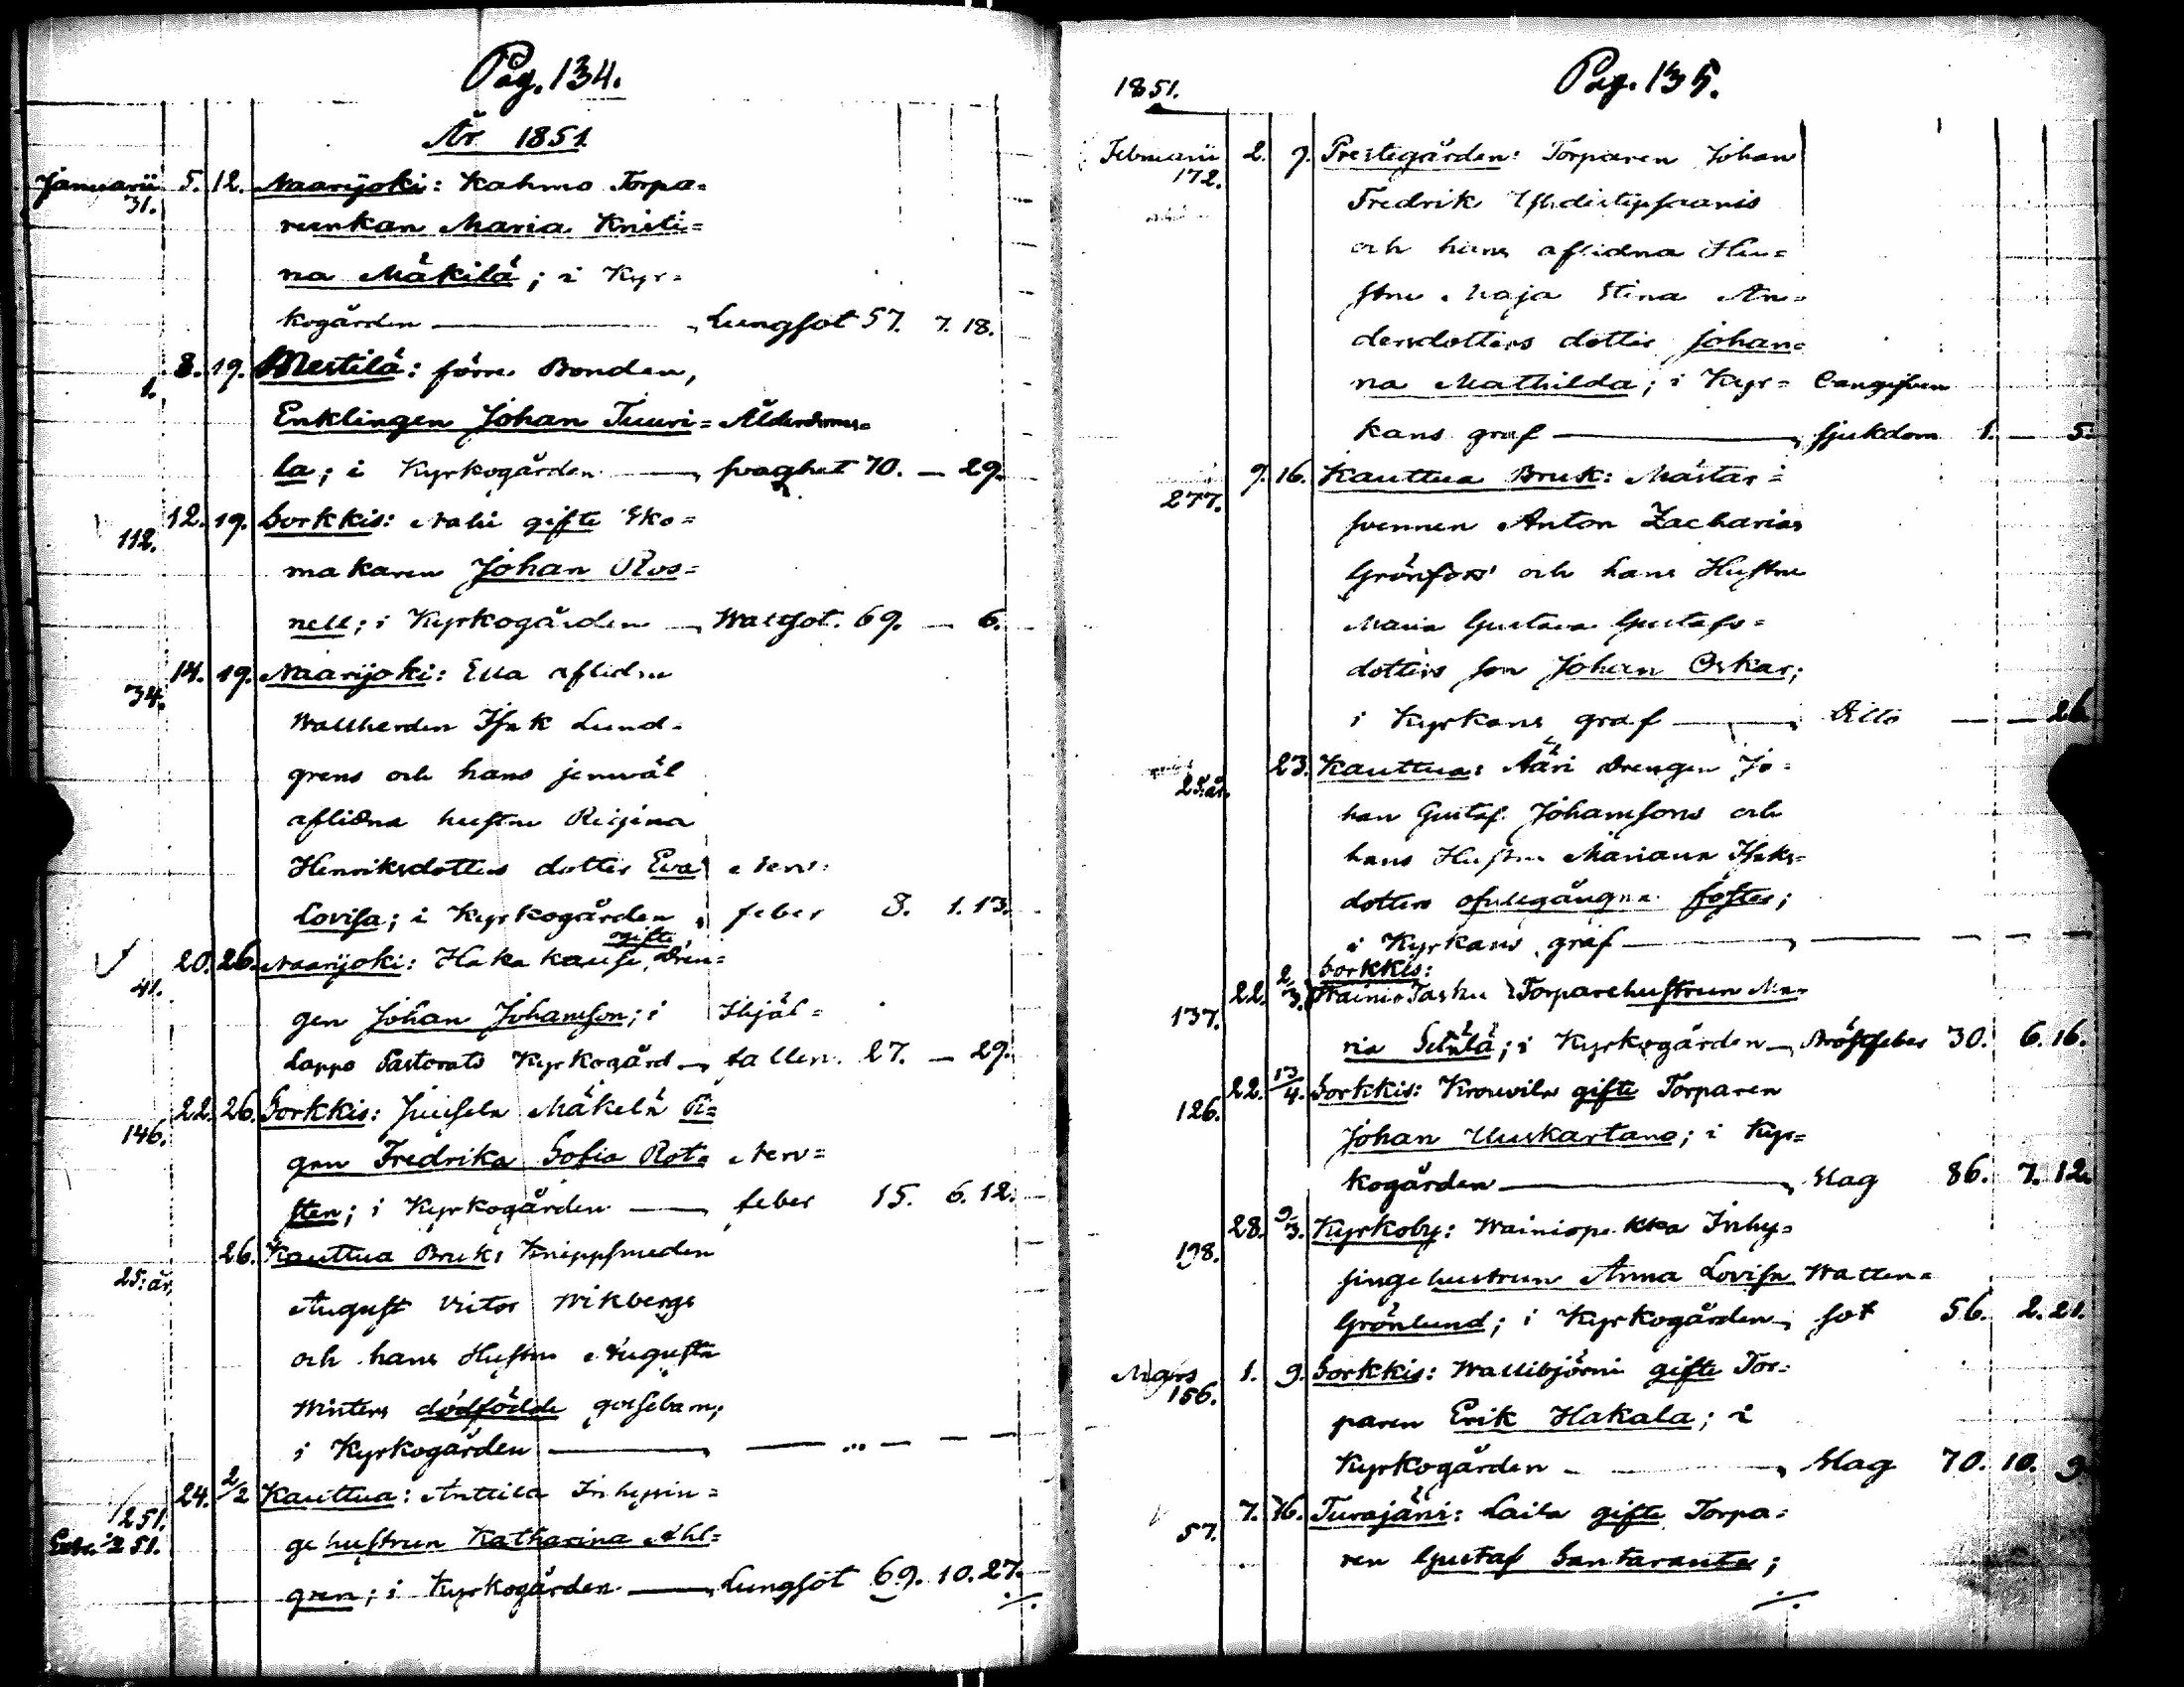 Pag. 134.
År 1851
Januarii 5. 12. Naarijoki: Kahmo Torpa=
31.
reenkan Maria Kristi=
na Mäkilä; i Kyr=
kogården — Lungsot 57. 7. 18.
8. 19. Mestilä: förre Bonden,
1.
Enklingen Johan Tuuri= Ålderdoms=
la; i Kyrkogården — svaghet 70. — 29.
12. 19. Sorkkis: Nahi gifte Sko=
112.
makaren Johan Ros=
nell; i Kyrkogården — Wattsot. 69. — 6.
14. 19. Naarijoki: Ella aflidne
34.
Wallherden Isak Lund=
grens och hans jemväl
aflidna hustru Regina
Henriksdotters dotter Eva Nerv=
Lovisa; i Kyrkogården feber 8. 1. 13.
gifte
20. 26. Naarijoki: Haka Dren=
41.
gen Johan Johansson; i Ihjäl=
Lappo Pastorats Kyrkogård — fallen. 27. — 29.
22. 26. Sorkkis: Juusela Mäkelä Pi=
146.
gan Fredrika Sofia Rot= Nerv=
sten; i Kyrkogården — feber 15. 6. 12.
26. Kauttua Bruk: Knippsmeden
25: år,
August Victor Wikbergs
och hans Hustru Augusta
Winters dödfödde gossebarn;
i Kyrkogården — — — — —
24. 2/2 Kauttua: Anttila Inhysin=
251.
Extr. 251.
gehustrun Katharina Ahl=
gren; i Kyrkogården — Lungsot 69. 10. 27.
./.
1851.
Pag. 135.
Februarii 2. 9. Prestegården: Torparen Johan
172.
Fredrik
och hans aflidna Hu=
stru Maja Stina An=
dersdotters dotter Johan=
na Mathilda; i Kyr= Oangifven
kans graf — sjukdom 1. — 5.
9. 16. Kauttua Bruk: Mästar=
277.
svennen Anton Zacharias
Grönfors och hans Hustru
Maria Gustava Gustafs=
dotters son Johan Oskar;
i Kyrkans graf — Ditto — — 26.
23. Kauttua: Ääri Drengen Jo=
25: år.
han Gustaf Johanssons och
hans Hustru Mariana Isaks=
dotters ofullgångna foster;
i Kyrkans graf — — — — —
Sorkkis:
22. 2/3. Wainio Tasku Torparehustrun Ma=
137.
ria Setälä; i Kyrkogården — Bröstfeber 30. 6. 16.
22. 13/4. Sorkkis: Krouvila gifte Torparen
126.
Johan Uuskartano; i Kyr=
kogården — Slag 86. 7. 12.
28. 9/3. Kyrkoby: Wainiopekka Inhy=
198.
singehustrun Anna Lovisa Watten=
Grönlund; i Kyrkogården — sot 56. 2. 21.
Mars 1. 9. Sorkkis: Wallibjörni gifte Tor=
156.
paren Erik Hakala; i
Kyrkogården — Slag 70. 10. 9.
7. 16. Turajärvi: Laila gifte Torpa=
57.
ren Gustaf Santaranta;
./.